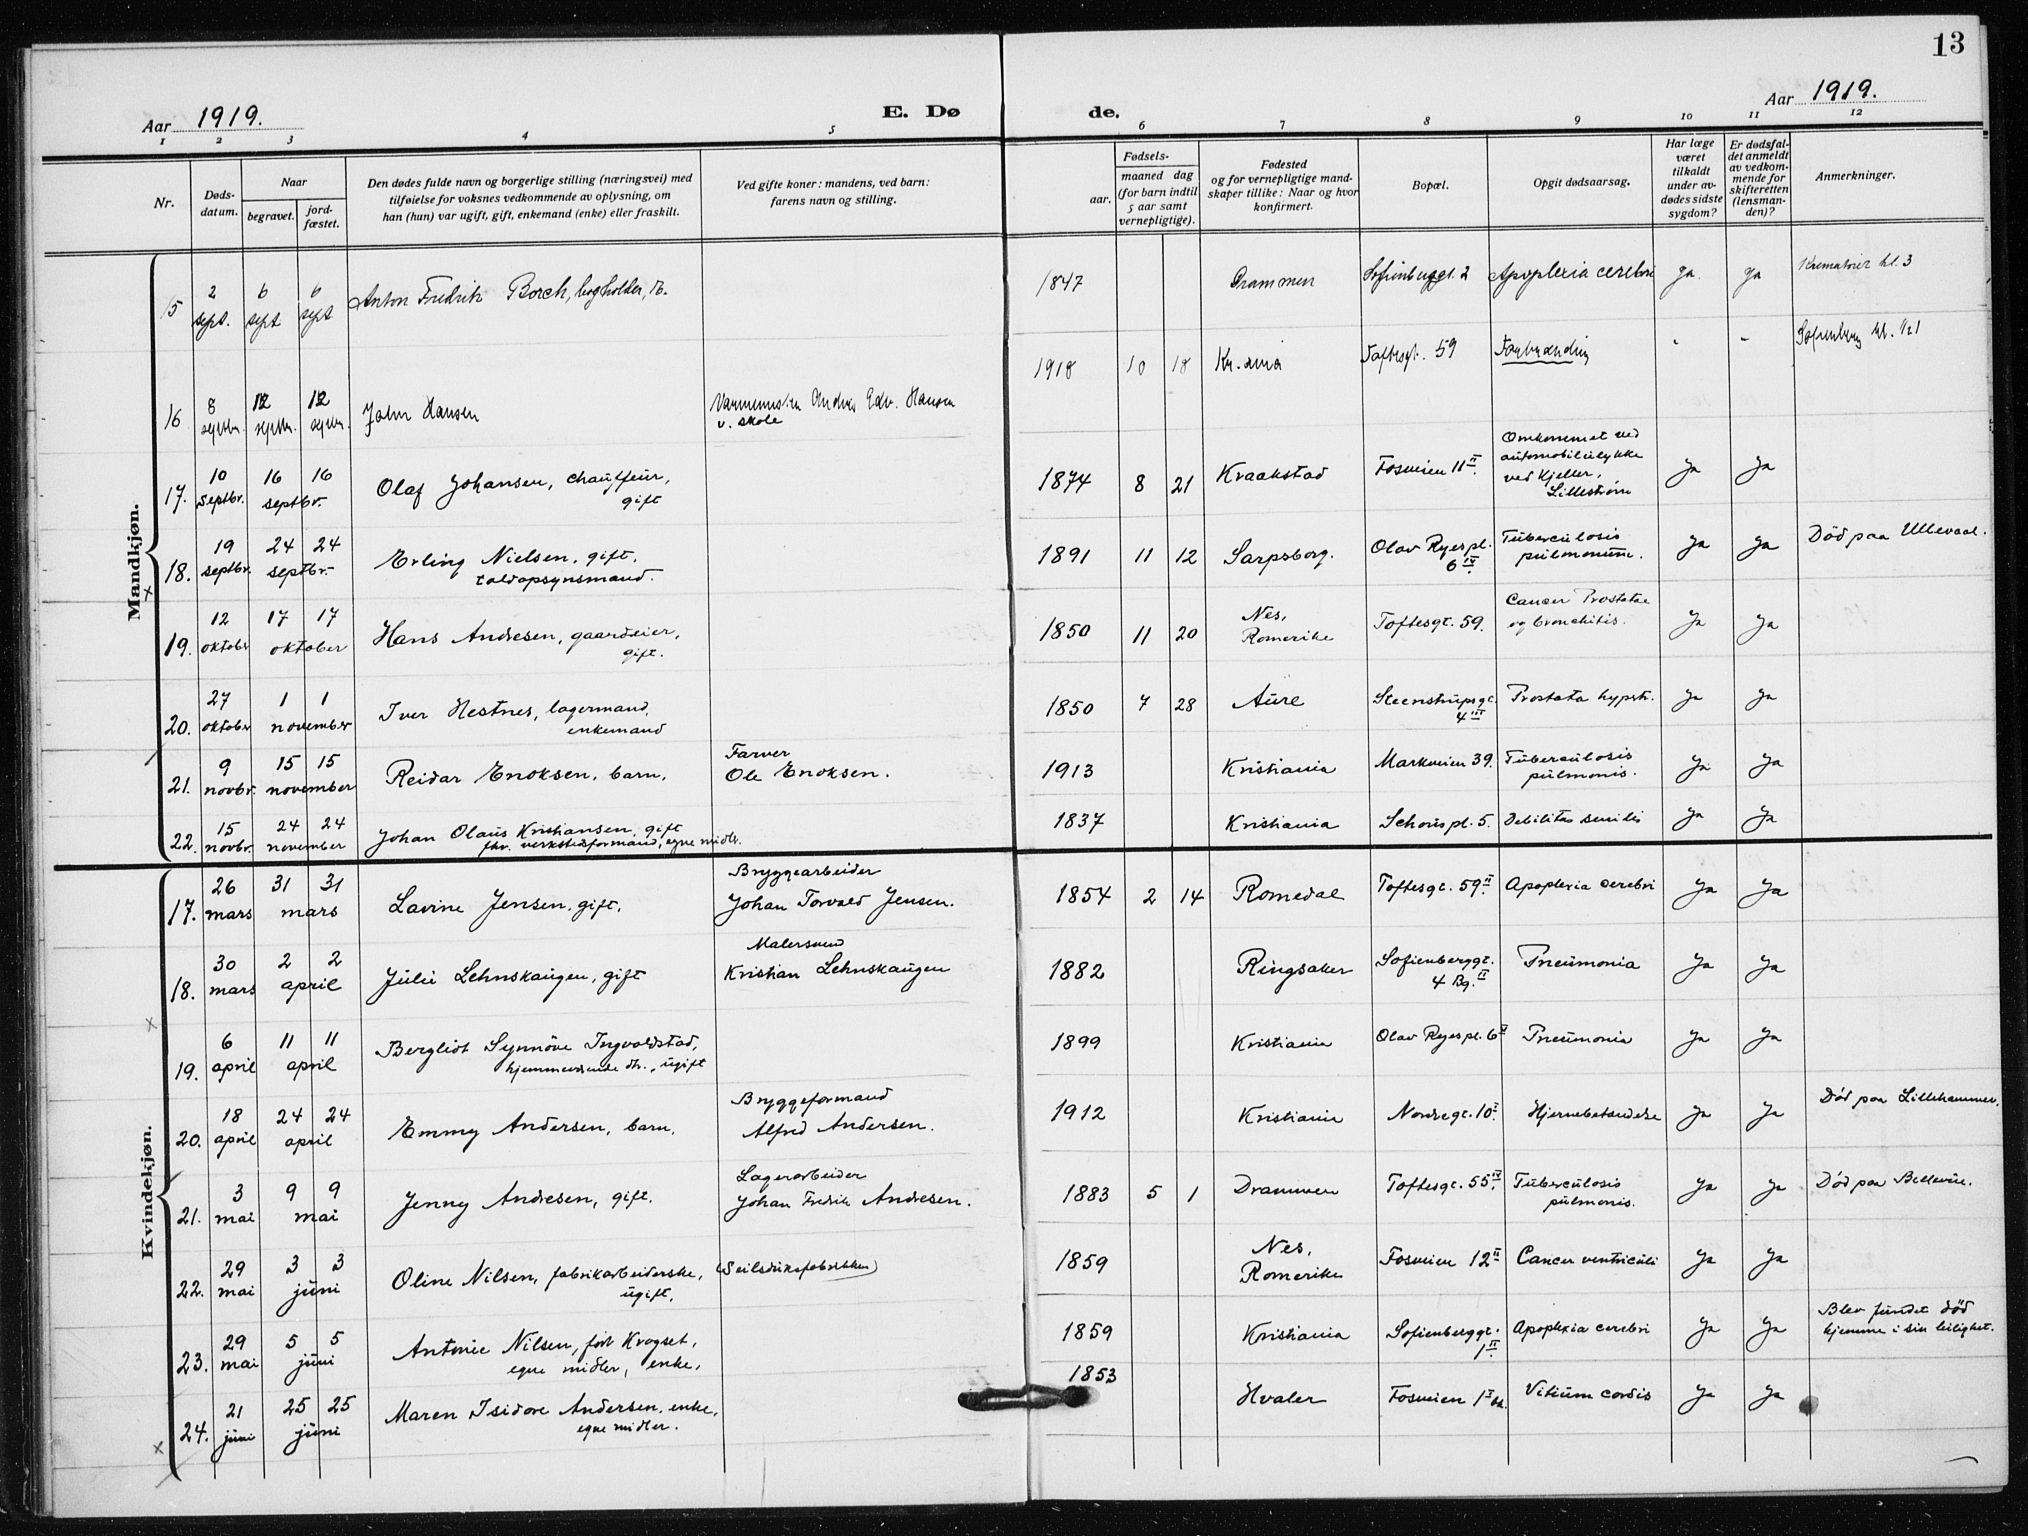 13
Aar 1919.
E. Dø
de.
Aar 1919.
1 2 3 4 5 6 7 8 9 10 11 12
Nr.
Døds-
datum.
Naar
begravet.
jord-
fæstet.
Den dødes fulde navn og borgerlige stilling (næringsvei) med
tilføielse for voksnes vedkommende av oplysning, om
han (hun) var ugift, gift, enkemand (enke) eller fraskilt.
Ved gifte koner: mandens, ved barn:
farens navn og stilling.
Fødsels-
aar.
maaned dag
(for barn indtil
5 aar samt
vernepligtige).
Fødested
og for vernepligtige mand-
skaper tillike: Naar og hvor
konfirmert.
Bopæl.
Opgit dødsaarsag.
Har læge
været
tilkaldt
under av-
dødes sidste
sygdom?
Er dødsfal-
det anmeldt
av vedkom-
mende for
skifteretten
(lensman-
den)?
Anmerkninger.
Mandkjøn.
15 2 sept. 6 sept 6 sept Anton Fredrik Borch, bogholder, 1847 Drammen Sofienberggt. 2 Apoplexia cerebri ja ja Krematoriet kl. 3
16 8 septbr. 12 septbr. 12 septbr. John Hansen Edv. Hansen
v. skole
1918 10 18 Kr.ania Toftesgt. 59 Forbrænding - - Sofienberg kl.
17. 10 septbr. 16 16 septbr. Olaf Johansen, chauffeur,
gift
1874 8 21 Kraakstad Fosveien 11 II Omkommet ved
automobilulykke
ved Kjeller,
Lillestrøm
Ja Ja
18. 19 septbr. 24 24 septbr. Erling Nielsen, gift,
toldopsynsmand.
1891 11 12 Sarpsborg. Olav Ryes pl.
6 IV
Tuberculosis
pulmonum.
Ja Ja Död paa Ullevaal.
19. 12 oktober 17 17 oktober Hans Andresen, gaardeier,
gift.
1850 11 20 Nes,
Romerike
Toftesgt. 59. Cancer Prostatae
og bronchitis.
Ja Ja
20. 27 oktober 1 1 november Iver Hestnes, lagermand,
enkemand
1850 7 28 Aure Steenstrupsgt.
4 III
Prostata hypstr. Ja Ja
21. 9 novbr. 15 15 november Reidar Enoksen, barn. Farver
Ole Enoksen.
1913 Kristiania Markveien 39. Tuberculosis
pulmonis.
Ja Ja
22. 15 novbr. 24 24 november Johan Olaus Kristiansen, gift
fhv. verkstedsformand, egne midler.
1837 Kristiania Schous pl. 5. Debilitas senilis Ja Ja
Kvindekjøn.
17. 26 mars 31 31 mars Lavine Jensen, gift. Bryggearbeider
Johan Torvald Jensen.
1854 2 14 Romedal Toftesgt. 59 II Apoplexia cerebri Ja Ja
18. 30 mars 2 2 april Julie Lehnskaugen, gift Malersvend
Kristian Lehnskaugen
1882 Ringsaker Sofienberggt.
4 Bg. II
Pneumonia Ja Ja
19. 6 april 11 11 april Bergliot Synnöve Ingvoldstad,
hjemmeværende dtr., ugift
1899 Kristiania Olav Ryes pl. 6 Pneumonia Ja Ja
20. 18 april 24 24 april Emmy Andersen, barn. Bryggeformand
Alfred Andersen.
1912 Kristiania Nordregt. 10 I Hjernebetændelse Ja Ja Död paa Lillehammer.
21. 3 mai 9 9 mai Jenny Andresen, gift. Lagerarbeider
Johan Fredrik Andresen.
1883 5 1 Drammen Toftesgt. 55 IV Tuberculosis
pulmonis.
Ja Ja Död paa Bellevue.
22. 29 mai 3 3 juni Oline Nilsen, fabrikarbeiderske,
ugift,
(Seilduksfabrikken)
1859 Nes,
Romerike
Fosveien 12 II Cancer ventriculi Ja Ja
23. 29 mai 5 5 juni Antonie Nilsen, født Krogset,
egne midler, enke,
1859 Kristiania Sofienberggt.
1 II
Apoplexia cerebri Ja Ja Blev fundet död
hjemme i sin leilighet.
24. 21 juni 25 25 juni Maren Isidore Andersen, enke,
egne midler.
1853 Hvaler Fosveien 1 I Vitium cordis Ja Ja